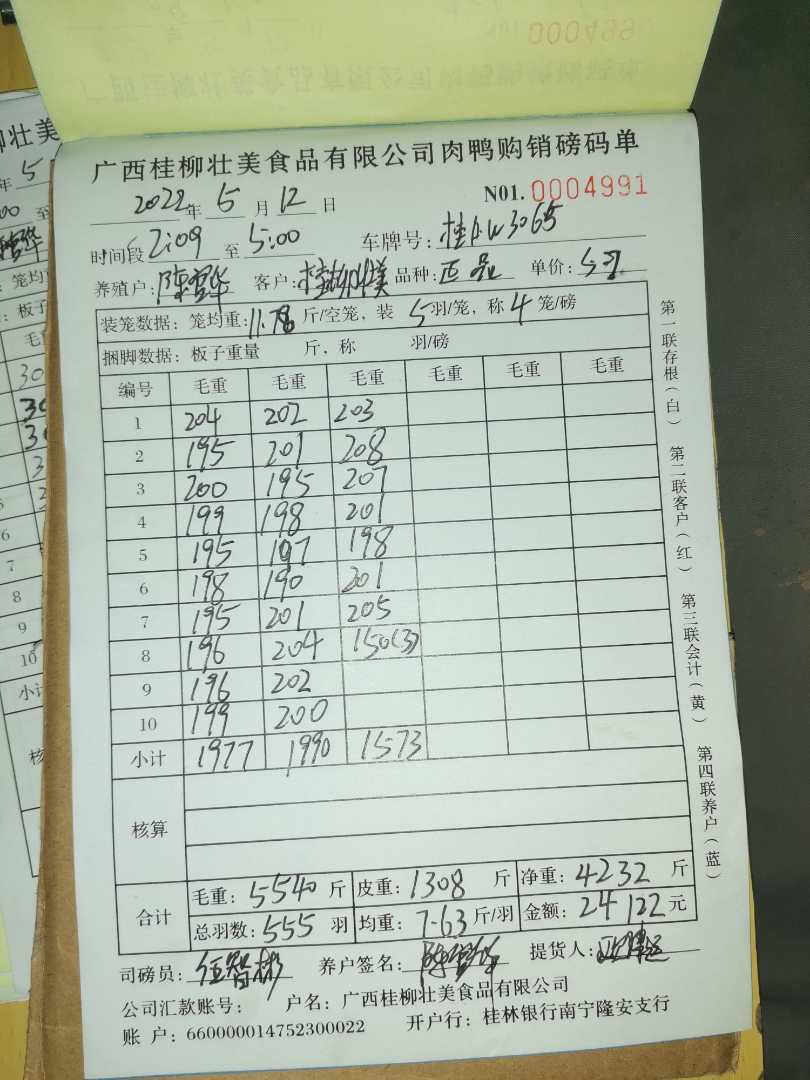 000499
广西桂柳壮美食品有限公司肉鸭购销磅码单
2022年 5 月 12 日 N01. 0004991
时间段 2:09 至 5:00 车牌号: 3065
养殖户: 陈 华 客户: 桂柳壮美 品种: 正品 单价: 5.7
装笼数据: 笼均重: 11.78 斤/空笼, 装 5 羽/笼, 称 4 笼/磅
捆脚数据: 板子重量 斤, 称 羽/磅
编号 毛重 毛重 毛重 毛重 毛重 毛重
1 204 202 203
2 195 201 208
3 200 195 207
4 199 198 201
5 195 197 198
6 198 190 201
7 195 201 205
8 196 204 150(3)
9 196 202
10 199 200
小计 1977 1990 1573
核算
合计 毛重: 5540 斤 皮重: 1308 斤 净重: 4232 斤
总羽数: 555 羽 均重: 7.63 斤/羽 金额: 24122 元
司磅员: 伍智彬 养户签名: 提货人:
公司汇款账号: 户名: 广西桂柳壮美食品有限公司
账 户: 660000014752300022 开户行: 桂林银行南宁隆安支行
第一联存根(白) 第二联客户(红) 第三联会计(黄) 第四联养户(蓝)